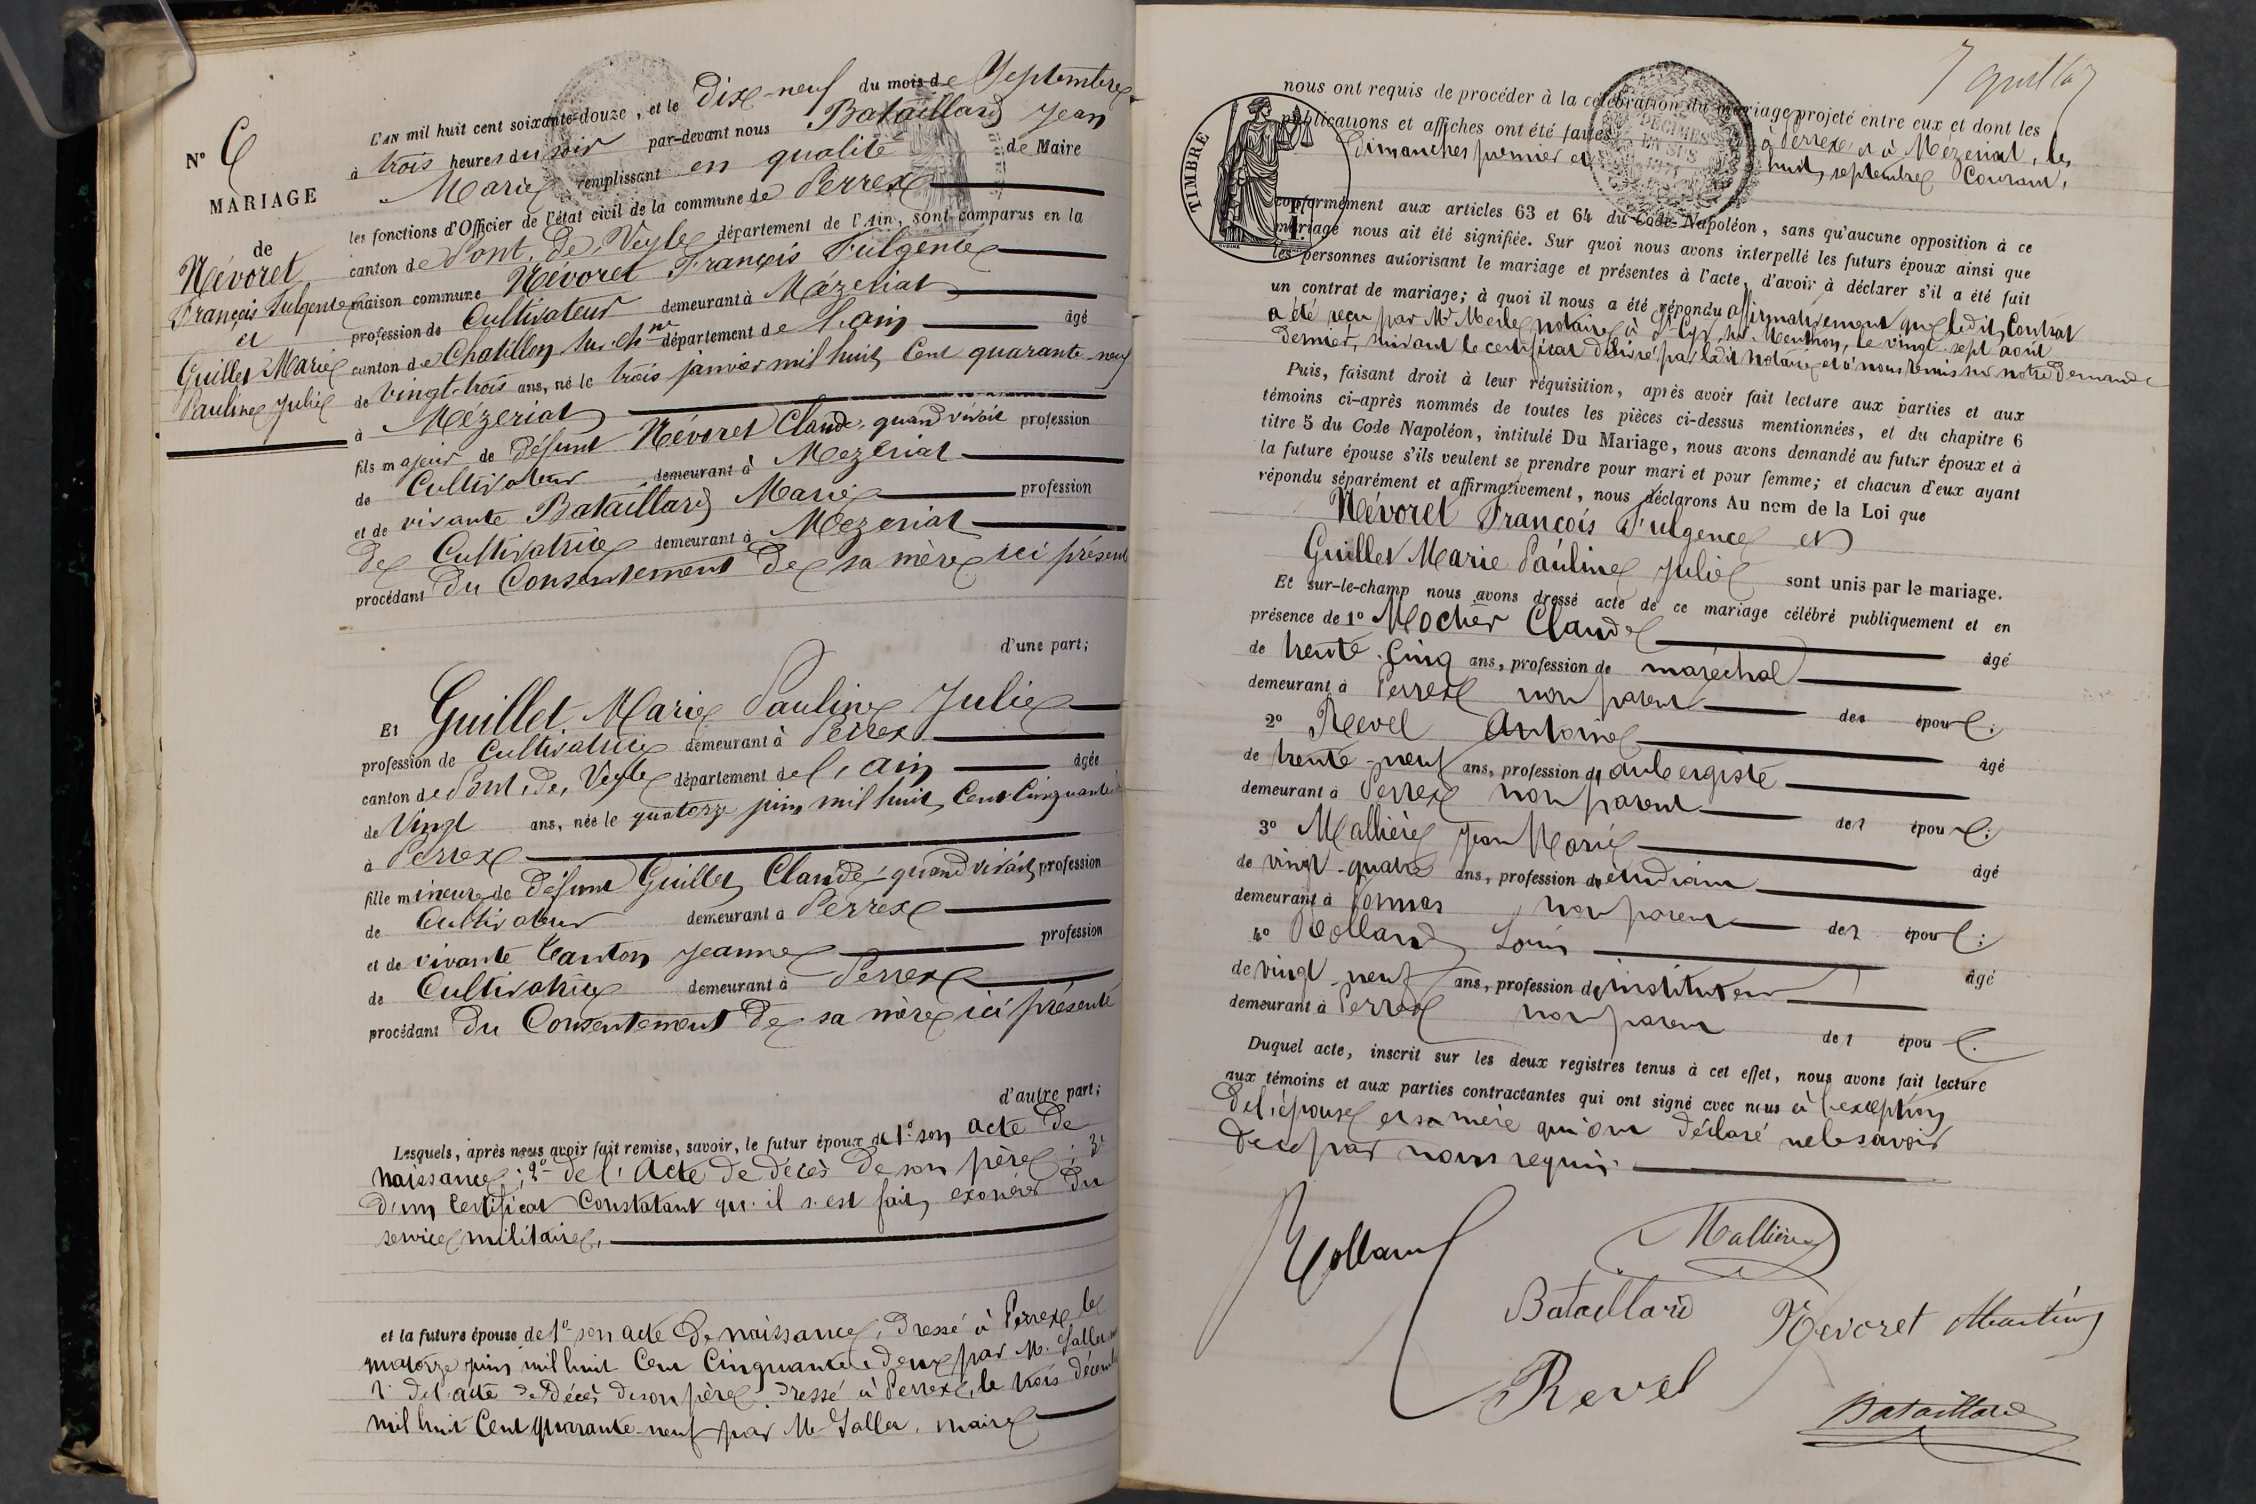 N° 6
MARIAGE
de
Névoret
François Fulgence
et
Guillet Marie
Pauline Julie
L'AN mil huit cent soixante-douze, et le Dix-neuf du mois de Septembre
à trois heures du soir par-devant nous Bataillard Jean
Marie remplissant en qualité de Maire
les fonctions d'Officier de l'état civil de la commune de Perrex
canton de Pont-de-Veyle département de l'Ain, sont comparus en la
maison commune Névoret François Fulgence
profession de Cultivateur demeurant à Mézériat
canton de Chatillon sur Ch.ne département de l'ain âgé
de vingt-trois ans, né le trois janvier mil huit Cent quarante-neuf
à Mezeriat
fils majeur de défunt Névoret Claude, quand vivait profession
de Cultivateur demeurant à Mezériat
et de vivante Bataillard Marie profession
de Cultivatrice demeurant à Mezeriat
procédant du Consentement de sa mère ici présente
d'une part;
Et Guillet Marie Pauline Julie
profession de Cultivatrice demeurant à Perrex
canton de Pont-de-Veyle département de l'ain âgée
de Vingt ans, née le quatorze juin mil huit Cent Cinquante
à Perrex
fille mineure de défunt Guillet Claude, quand vivait, profession
de Cultivateur demeurant à Perrex
et de vivante Canton Jeanne profession
de Cultivatrice demeurant à Perrex
procédant du Consentement de sa mère ici présente
d'autre part;
Lesquels, après nous avoir fait remise, savoir, le futur époux de 1° son acte de
naissance; 2° de l'Acte de décès de son père; 3°
d'un Certificat Constatant qu'il s'est fait exonérer du
service militaire,
et la future épouse de 1° son acte de naissance, dressé à Perrex le
quatorze juin mil huit Cent Cinquante deux par M.
2° de l'acte de Décès de son père, dressé à Perrex, le trois décembre
mil huit Cent quarante-neuf par M. maire
nous ont requis de procéder à la célébration du mariage projeté entre eux et dont les
publications et affiches ont été faites à Perrex et à Mezeriat, les
Dimanches premier et huit septembre Courant,
TIMBRE
DÉCIMES
EN SUS
conformément aux articles 63 et 64 du Code Napoléon, sans qu'aucune opposition à ce
mariage nous ait été signifiée. Sur quoi nous avons interpellé les futurs époux ainsi que
les personnes autorisant le mariage et présentes à l'acte, d'avoir à déclarer s'il a été fait
un contrat de mariage; à quoi il nous a été répondu affirmativement que ledit Contrat
a été reçu par Me Merle notaire à St Cyr sur Menthon, le vingt-sept août
dernier, suivant le certificat délivré par ledit notaire et à nous remis sur notre demande
Puis, faisant droit à leur réquisition, après avoir fait lecture aux parties et aux
témoins ci-après nommés de toutes les pièces ci-dessus mentionnées, et du chapitre 6
titre 5 du Code Napoléon, intitulé Du Mariage, nous avons demandé au futur époux et à
la future épouse s'ils veulent se prendre pour mari et pour femme; et chacun d'eux ayant
répondu séparément et affirmativement, nous déclarons Au nom de la Loi que
Névoret François Fulgence et
Guillet Marie Pauline Julie sont unis par le mariage.
Et sur-le-champ nous avons dressé acte de ce mariage célébré publiquement et en
présence de 1° Mocher Claude âgé
de trente-cinq ans, profession de maréchal
demeurant à Perrex non parent des épou
2° Revel Antoine âgé
de trente-neuf ans, profession de aubergiste
demeurant à Perrex non parent de l épou
3° Mallière Jean Marie âgé
de vingt-quatre ans, profession de étudiant
demeurant à Vonnas non parent de l épou
4° Rolland Louis âgé
de vingt-neuf ans, profession de instituteur
demeurant à Perrex non parent de l épou
Duquel acte, inscrit sur les deux registres tenus à cet effet, nous avons fait lecture
aux témoins et aux parties contractantes qui ont signé avec nous à l'exception
de l'épouse et sa mère qui ont déclaré ne le savoir
de ce par nous requis.
Rolland
Mallière
Bataillard
Nevoret
Revel
Bataillard